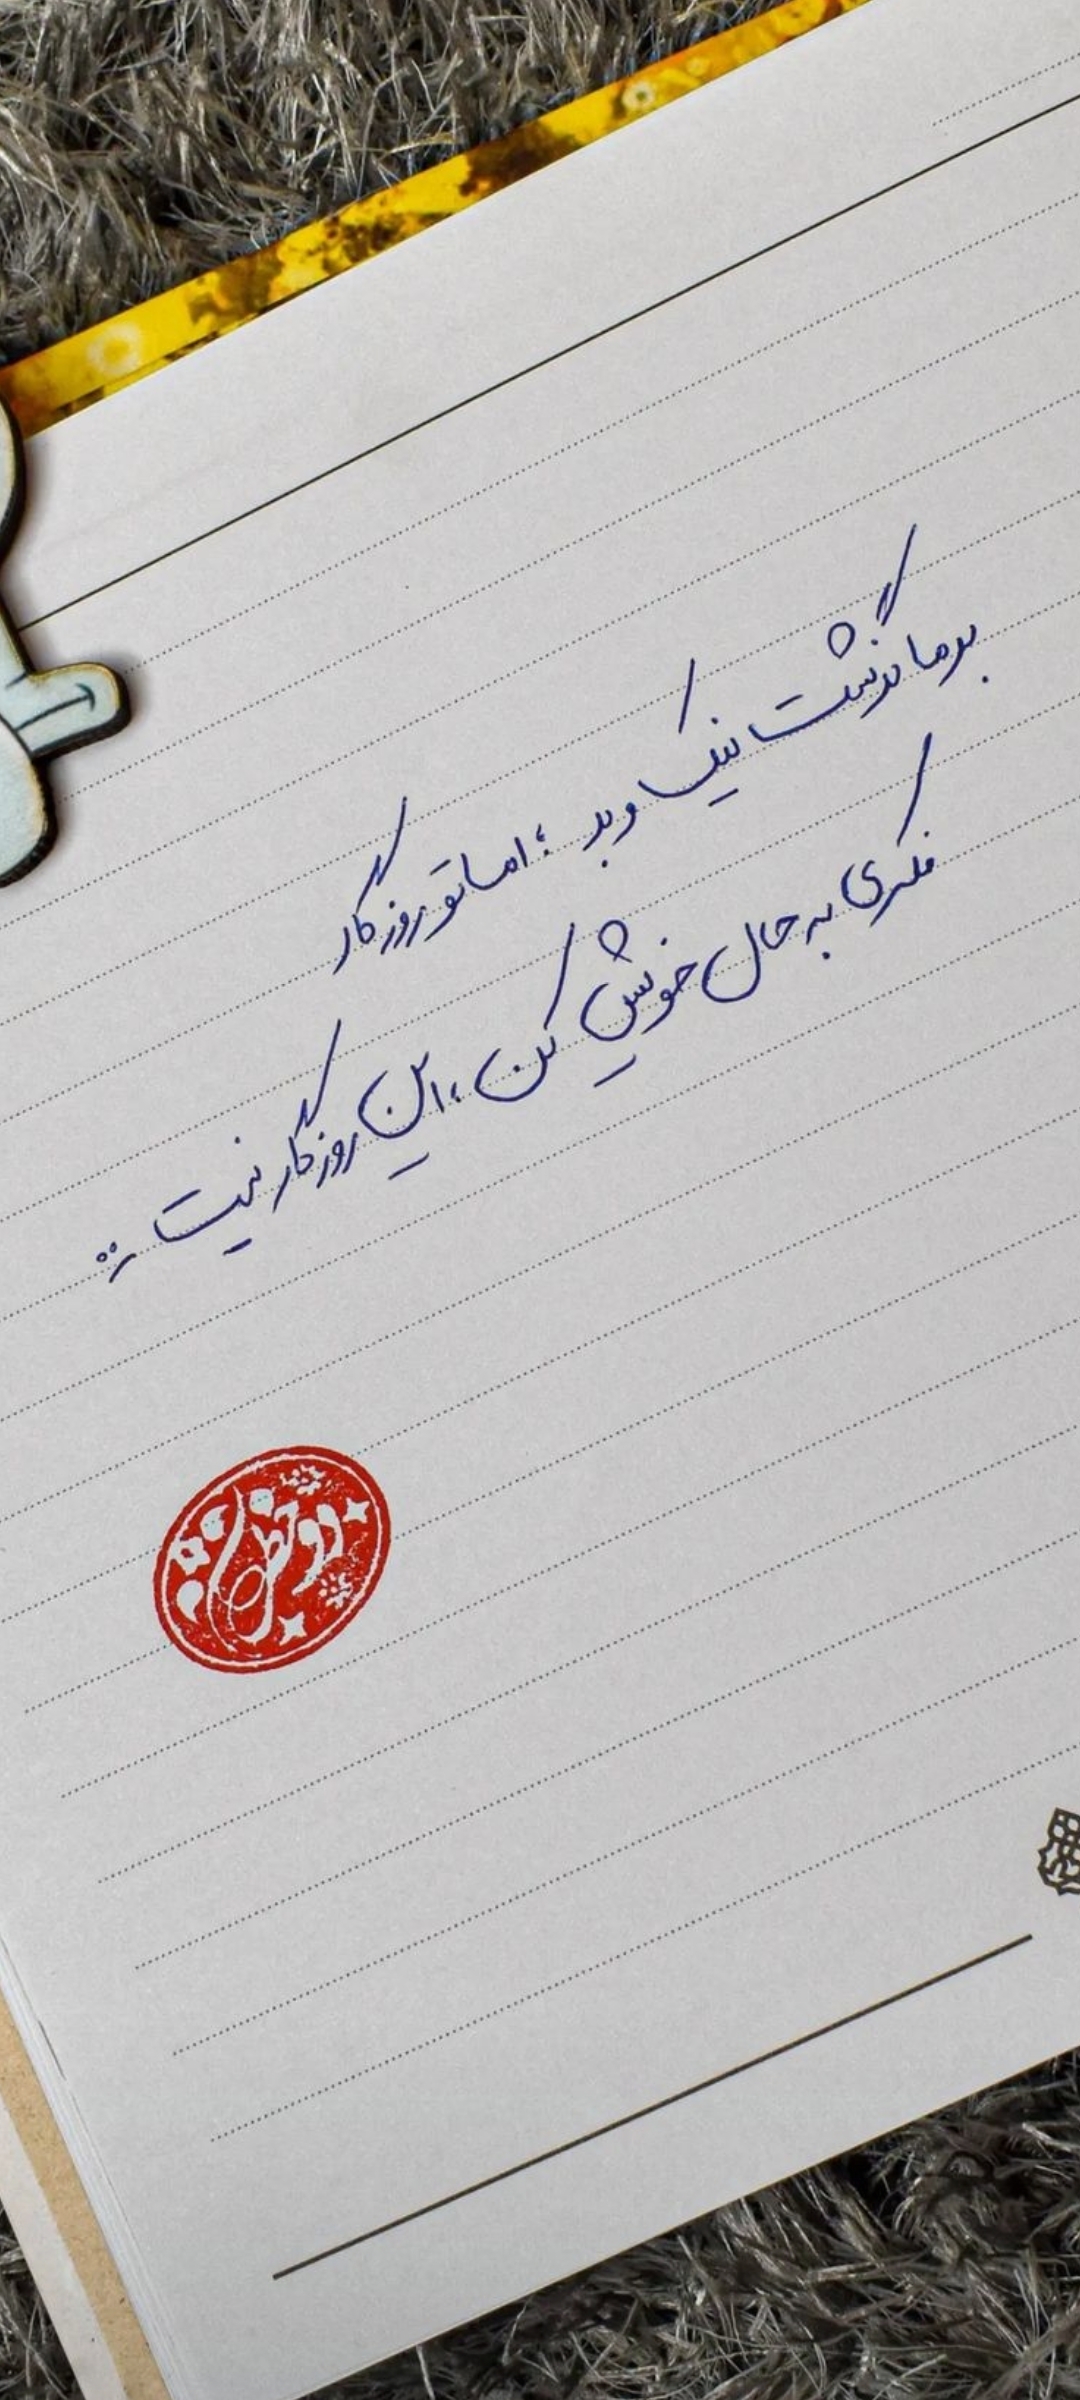 بر ما گذشت نیک و بد ؛ اما تو روزگار
فکری به حال خویش کن ، این روزگار نیست ...